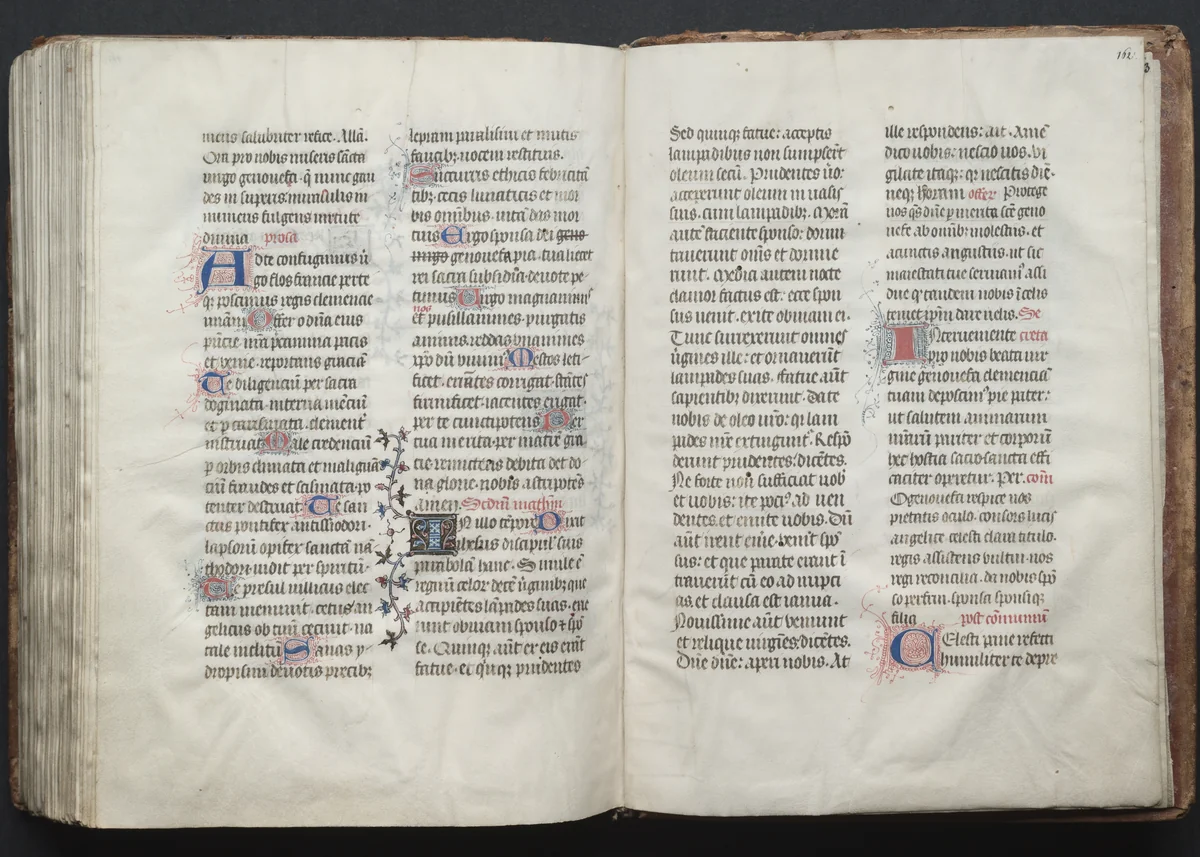 mens salubriter refice. Alla.
Ora pro nobis miseris sancta
virgo genovefa. q nunc gau
des in superis. mirabilis in
numeris fulgens virtute
divina prosa
Ad te confugimus u
go flos francie per te
q poscimus regis clemencie
Offer o dna eius
pacis
et veie. reportans gracia
Te diligenciu per sacra
dogmata. interna
et p element
instruat Mole credenciu
p orbis climata et maligna
ciu fraudes et scismata. po
tenter destruat Te san
ctus pontifex antissiodori.
lapsoru opifex sancta na
thodori. vidit per spiritu.
Te presul milicius elec
tam meminit. cetus an
gelicus ob tuu cecinit. na
tale Sanas y
dropisim devotis precibz
lepram paralisim et mutis
faucibz. vocem restituis.
Succurris ethicis febricita
tibz. cecis lunaticis et mor
bis omnibus. vita das mor
tuis Ergo sponsa dei geno
virgo genovefa pia. tua licet
rei sacra subsidia. devote pe
timus Virgo magnanimis
nos
et pusillanimes. purgatis
animis. reddas unanimes
xpo dum vivim Mestos leti
ficet. errantes corrigat. stantes
firmificet. iacentes erigat.
per te cunctipotens Per
tua merita. per matris gra
cie. remittens debita det do
na glorie. nobis ascriptis
amen. Scdm matheu
In illo tepore Dixit
ihesus discipul suis
parabola hanc. Simile e
regnu celor dece uginibz. que
accipietes lapades suas. exie
runt obviam sponso & spo
se. Quinqz aut ex eis erat
fatue. et quiqz prudentes
162
Sed quinqz fatue: acceptis
lampadibus non sumpsert
oleum secu. Prudentes vo:
acceperunt oleum in vasis
suis. cum lampadibz. Mora
aute faciente sponso: dormi
taverunt oms et dormie
runt. Media autem nocte
clamor factus est: ecce spon
sus venit. exite obviam ei.
Tunc surrexerunt omnes
vgines ille: et ornaverut
lampades suas. fatue aut
sapientibz dixerunt. Date
nobis de oleo vro: qr lam
pades nre extingunt. Respo
derunt prudentes: dicetes.
Ne forte non sufficiat nob
et vobis: ite poci ad ven
dentes. et emite vobis. Du
aut irent emere. venit spo
sus: et que parate erant i
traverut cu eo ad nupci
as. et clausa est ianua.
Novissime aut veniunt
et relique virgines. dicetes.
Dne dne: aperi nobis. At
ille respondens: ait. Ame
dico vobis: nescio vos. Vi
gilate itaqz: qr nescitis die.
neqz horam offer Protege
nos qs dne p merita sce geno
vefe ab omibz molestiis. et
angustiis. ut sic
maiestati tue serviam assi
due q tandem nobis i celis
temet ipm dare velis. Se
Interveniente creta
pro nobis beata vir
gine genovefa clemencia
tuam deposcim pie pater:
ut salutem animarum
nraru pariter et corporu
hec hostia sacrosancta effi
caciter operetur. Per. com
O genovefa respice nos
pietatis oculo. consors lucis
angelice celesti clara titulo.
regis assistens vultui. nos
regi reconcilia. da nobis spo
so perfrui. sponsa sponsiqz
filia. post comuniu
Celesti pane refecti
humiliter te depre